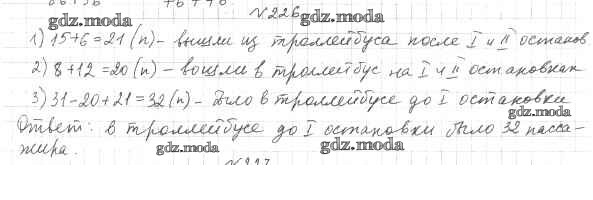 №226 gdz.moda
gdz.moda
1) 15+6=21 (п) - вышли из троллейбуса после I и II останов
2) 8+12=20 (п) - вошли в троллейбус на I и II остановках
3) 31-20+21=32 (п) - было в троллейбусе до I остановки
gdz.moda
Ответ: в троллейбусе до I остановки было 32 пасса-
жира.
gdz.moda
gdz.moda